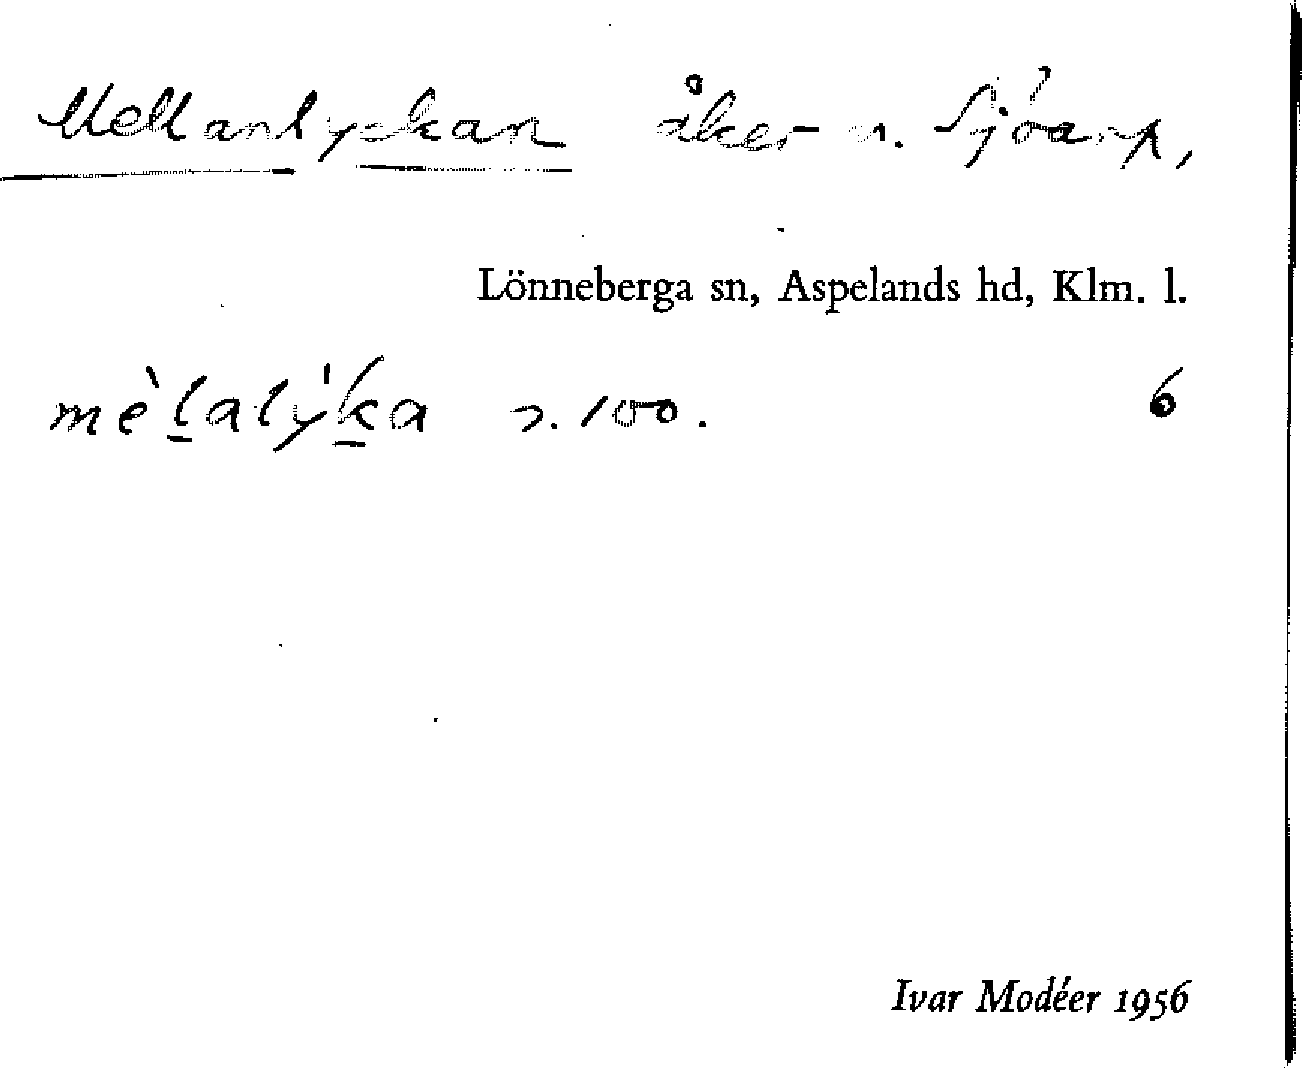 Mellanlyckan åker n. Sjöarp,
Lönneberga sn, Aspelands hd, Klm. l.
mèlalýka 100. 6
Ivar Modéer 1956